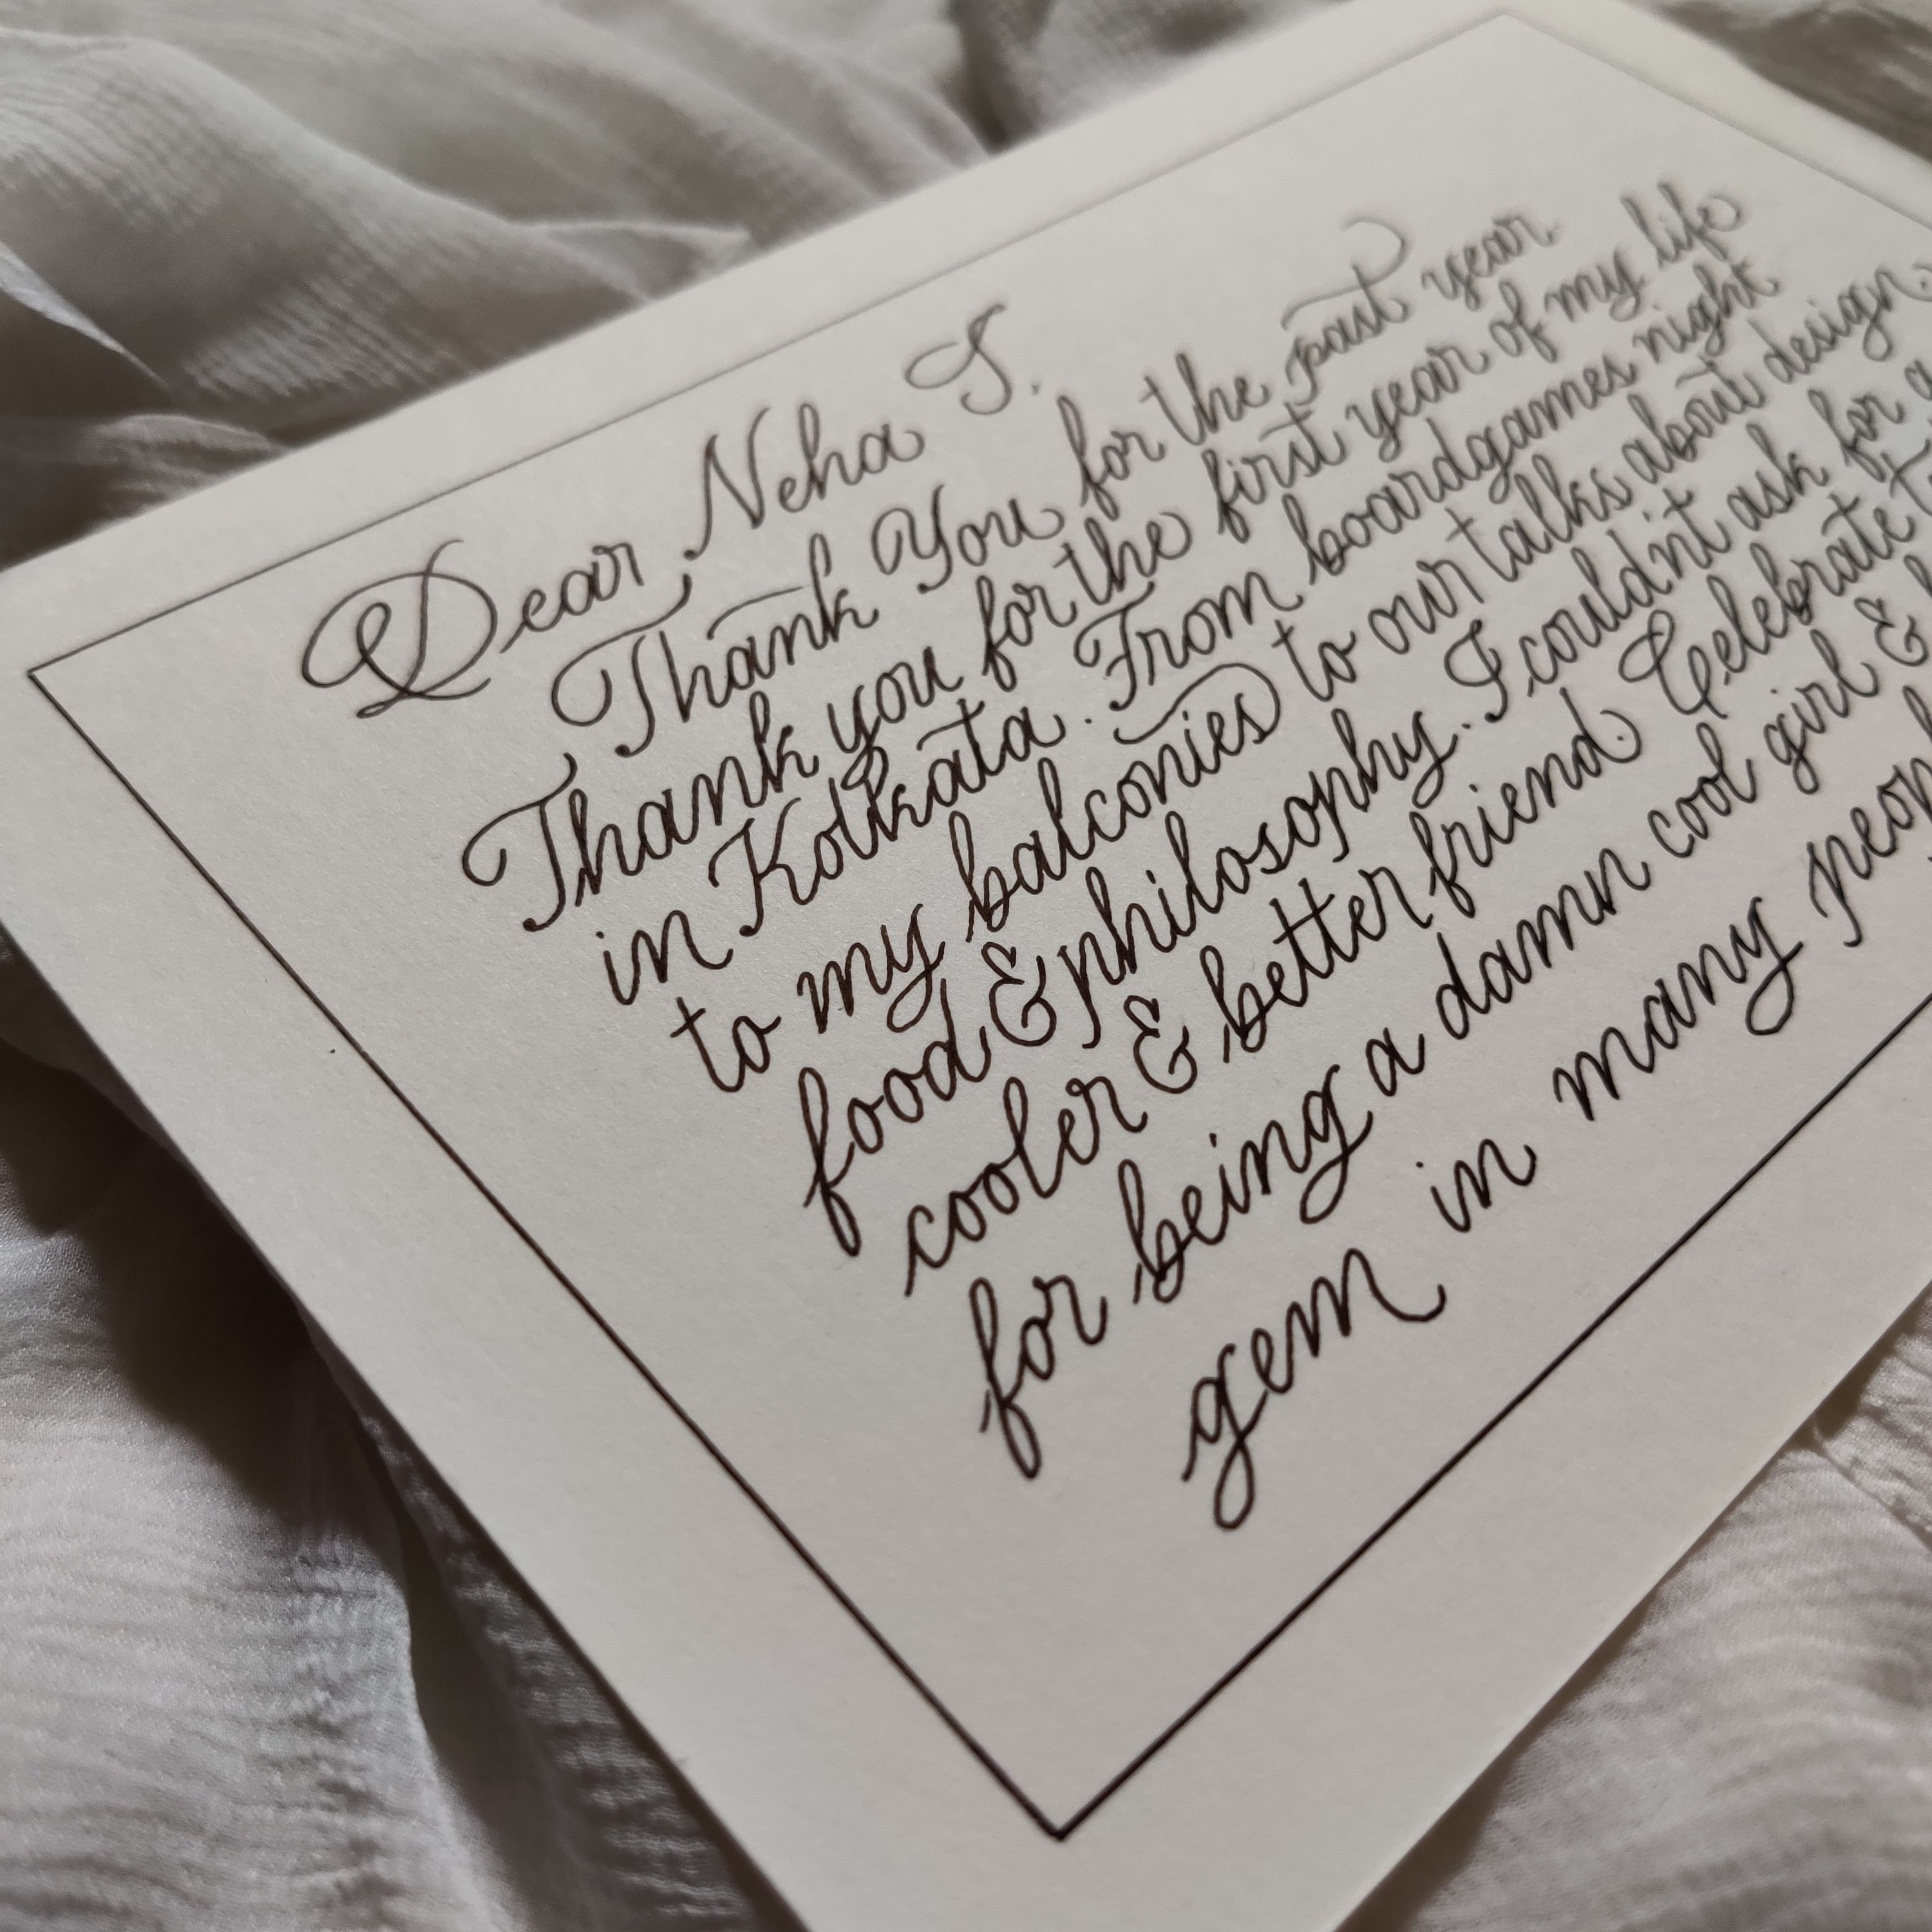 Dear Neha S.
Thank You for the past year.
Thank you for the first year of my life
in Kolkata. From boardgames night
to my balconies to our talks about design,
food & philosophy. I couldn't ask for a
cooler & better friend. Celebrate
for being a damn cool girl &
gem in many